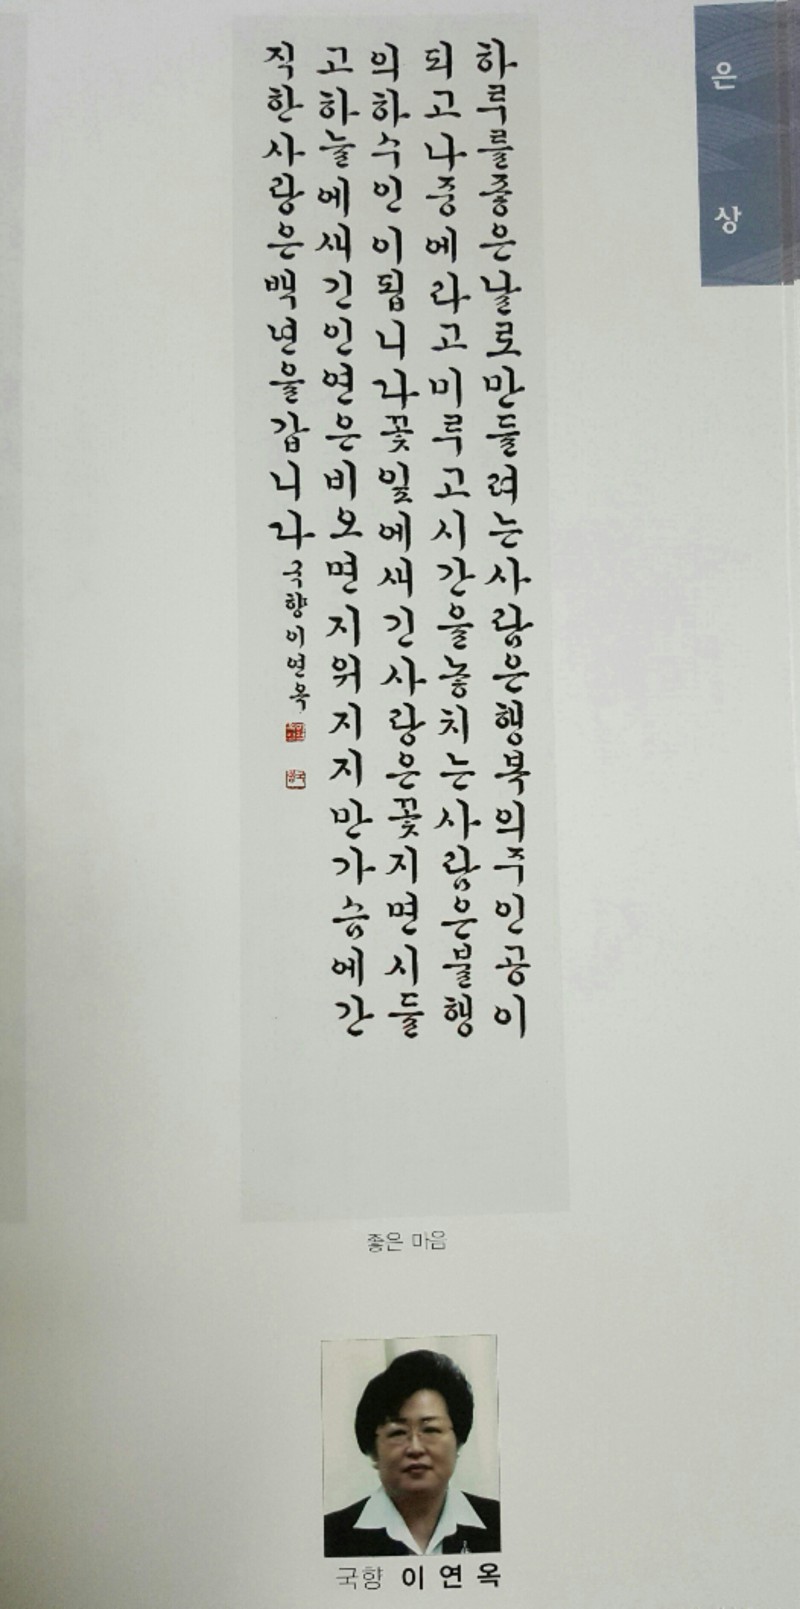 은상
하루를좋은날로만들려는사람은행복의주인공이
되고나중에라고미루고시간을놓치는사람은불행
의하수인이됩니다꽃잎에새긴사랑은꽃지면시들
고하늘에새긴인연은비오면지워지지만가슴에간
직한사랑은백년을갑니다 국향이연옥
좋은 마음
국향 이연옥